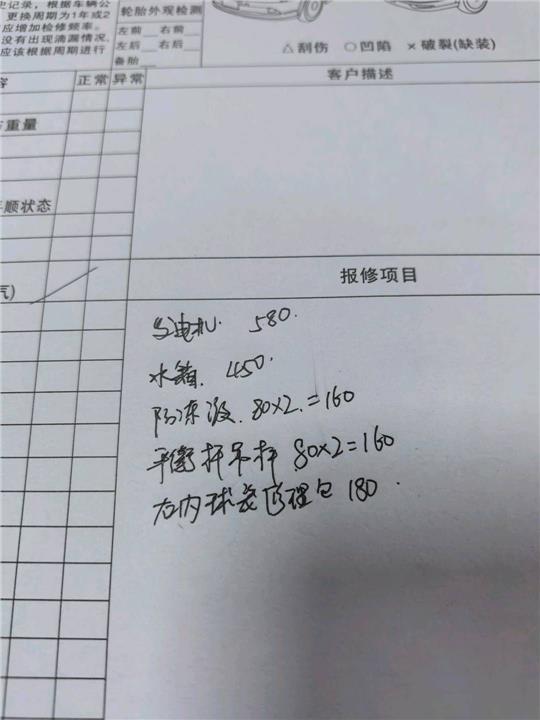 史记录，根据车辆公
更换周期为1年或2
应增加检修频率。
没有出现滴漏情况，
应该根据周期进行
轮胎外观检测
左前 右前
左后 右后
备胎
△刮伤 ○凹陷 ×破裂(缺装)
容 正常 异常 客户描述
重量
顺状态
气)
报修项目
发电机. 580.
水箱. 450.
防冻液. 80×2.=160
平衡杆吊杆 80×2=160
左内球笼修理包 180.